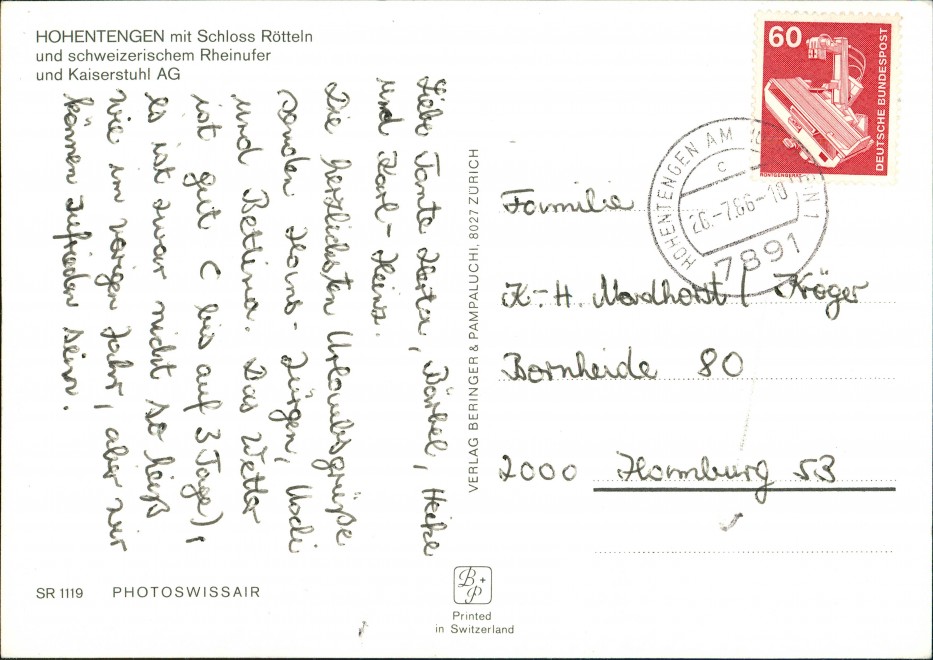 HOHENTENGEN mit Schloss Rötteln
und schweizerischem Rheinufer
und Kaiserstuhl AG
Liebe Tante Herta, Bärbel, Heike
und Karl-Heinz.
Die herzlichsten Urlaubsgrüße
senden Hans-Jürgen, Uschi
und Bettina. Das Wetter
ist gut ( bis auf 3 Tage),
es ist zwar nicht so heiß
wie im vorigen Jahr, aber wir
können zufrieden sein.
SR 1119 PHOTOSWISSAIR
VERLAG BERINGER & PAMPALUCHI, 8027 ZÜRICH
B + P
Printed
in Switzerland
60
DEUTSCHE BUNDESPOST
RÖNTGENGERÄT
HOHENTENGEN AM
c
26.-7.86-10
7891
Familie
K.-H. Nordhorst / Kröger
Bornheide 80
2000 Hamburg 53